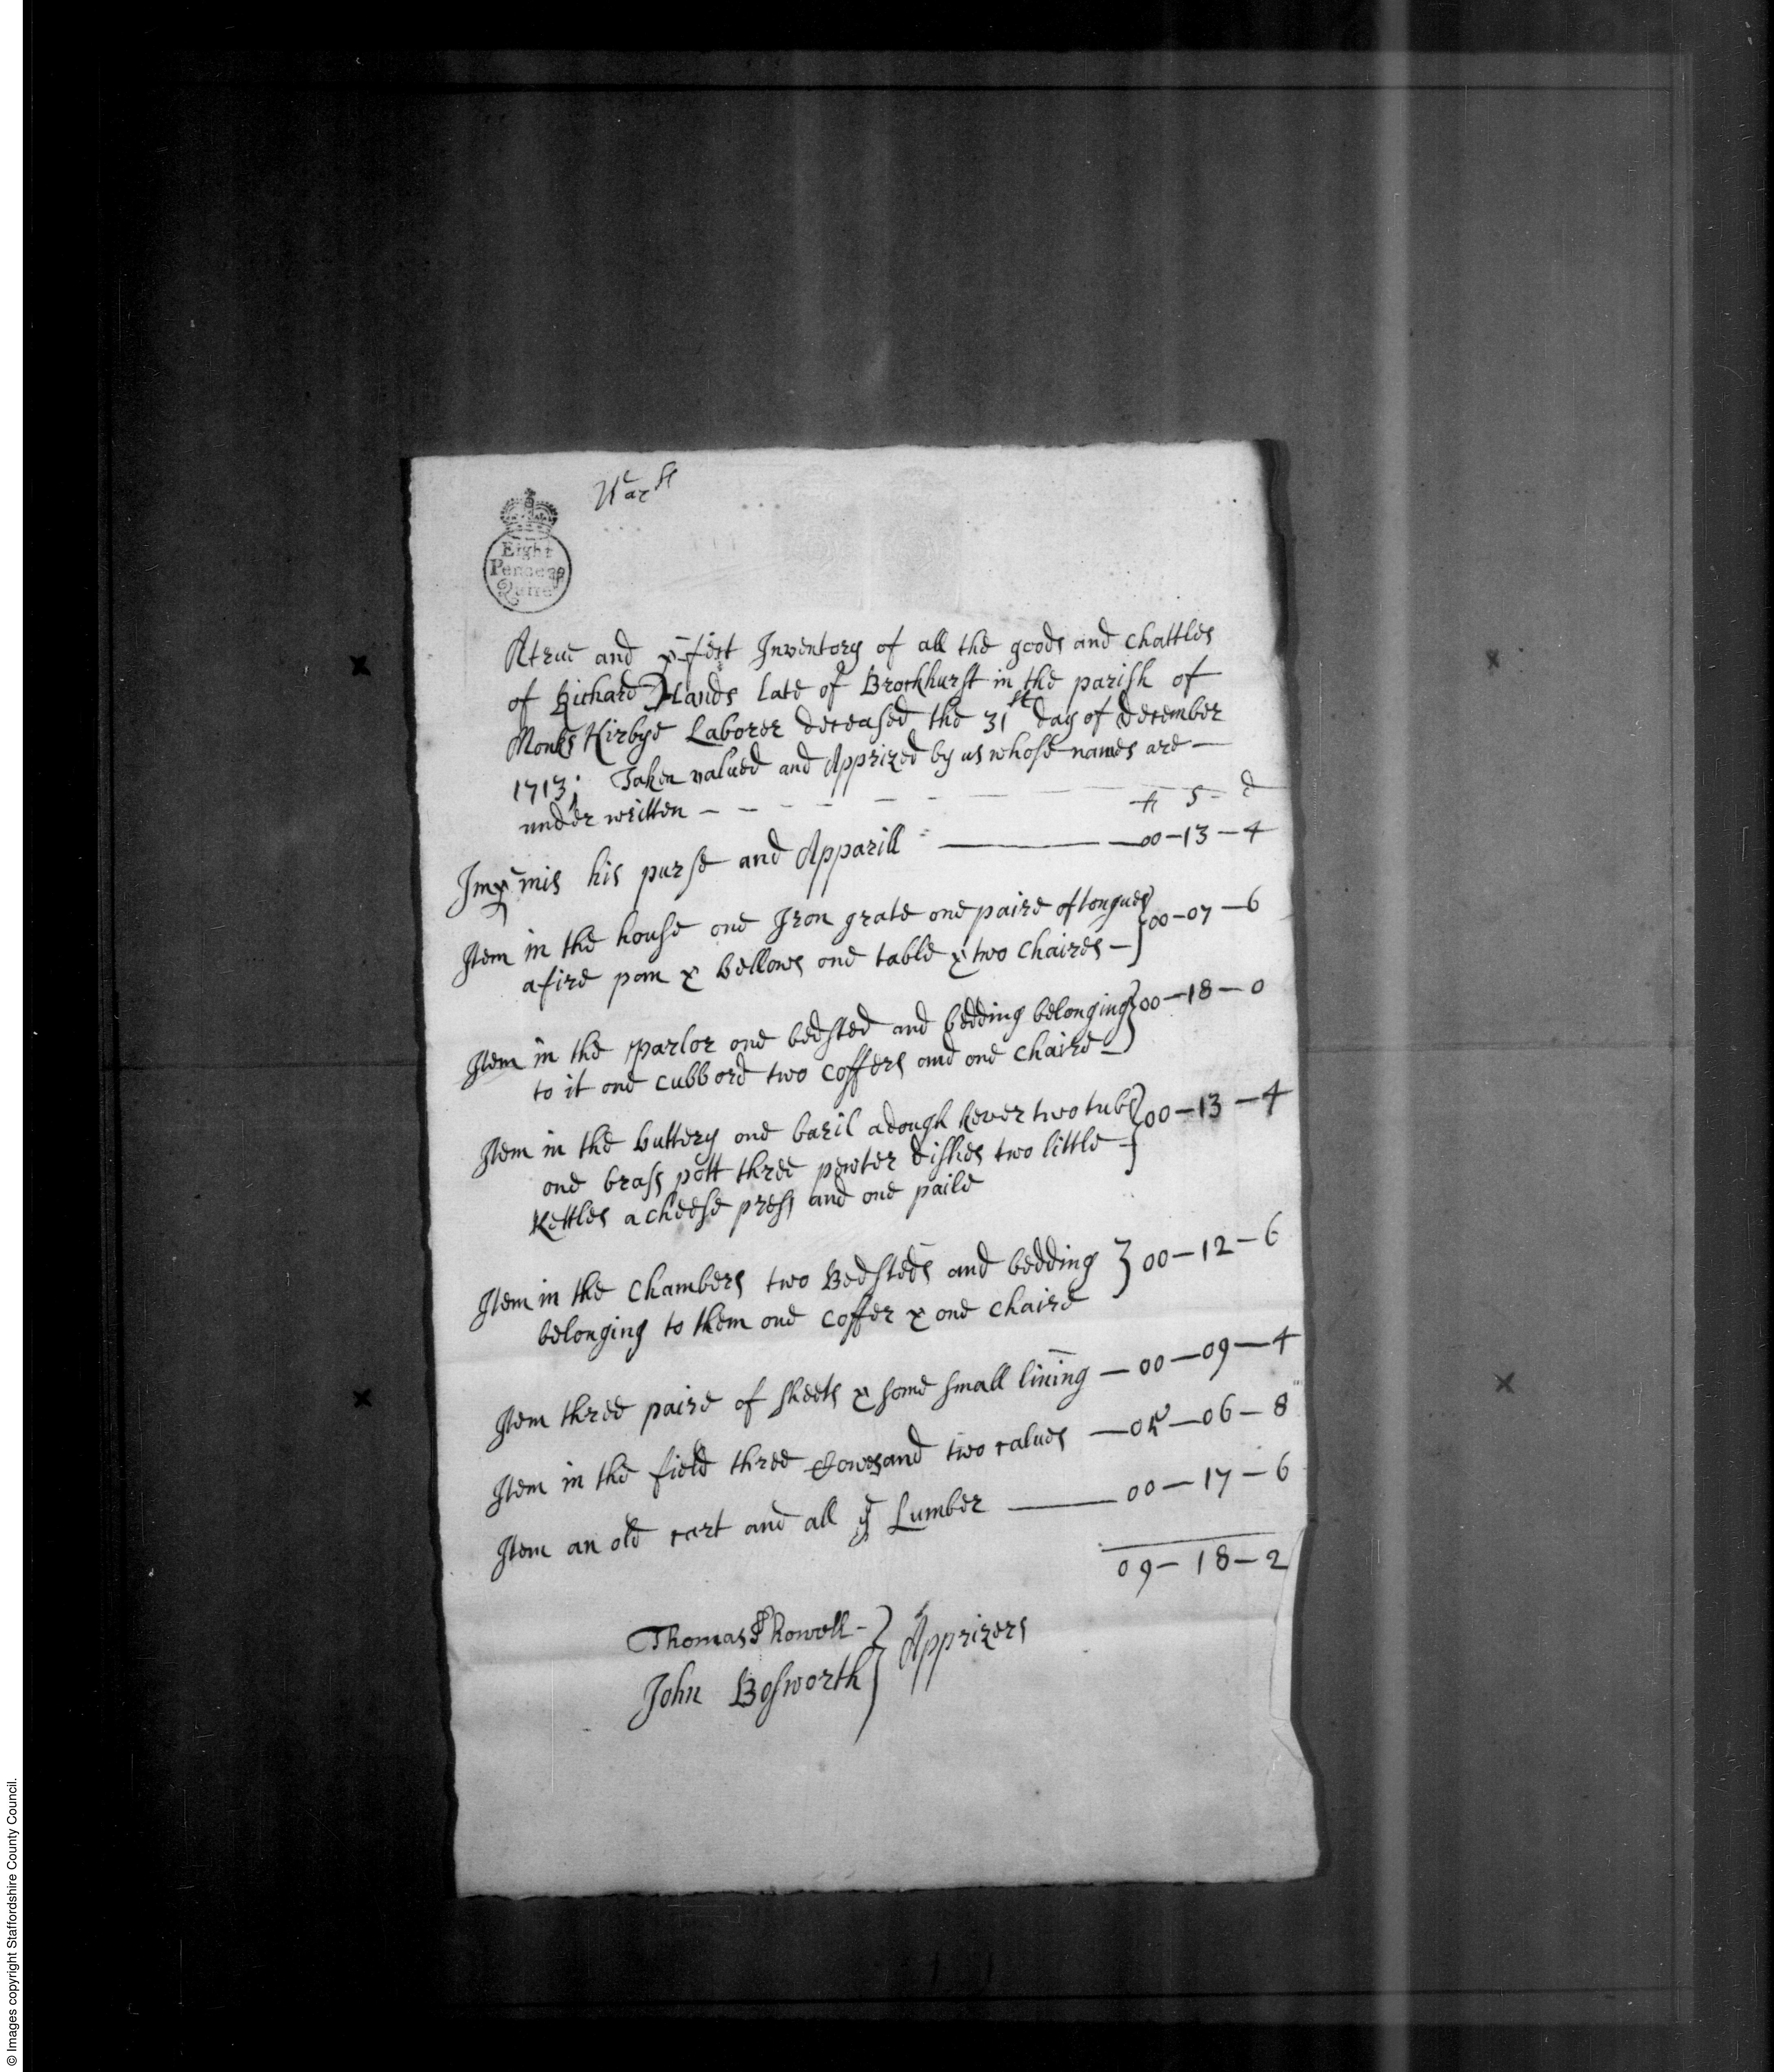 Warh
Eight
Pence ℘
Quire
A true and p̄fect Inventory of all the goods and chattles
of Richard Hands late of Brockhurst in the parish of
Monks Kirbye Laborer deceased the 31st day of december
1713: Taken valued and Apprized by us whose names are —
under written — — — — — — — li s d
Imp̄mis his purse and Apparill — 00-13-4
Item in the house one Iron grate one paire of tongues } 00-07-6
a fire pan & bellows one table & two Chaires —
Item in the parlor one bedsted and bedding belonging } 00-18-0
to it one cubbord two coffers and one chaire —
Item in the buttery one baril a dough kever two tubs } 00-13-4
one brass pott three pewter dishes two little —
Kettles a cheese press and one paile
Item in the Chambers two Bedsteds and bedding } 00-12-6
belonging to them one coffer & one chaire
Item three paire of sheets & some small lining — 00-09-4
Item in the field three Cowes and two calves — 05-06-8
Item an old cart and all ye Lumber — 00-17-6
09-18-2
Thomas Rowell - } Apprizers
John Bosworth
© Images copyright Staffordshire County Council.